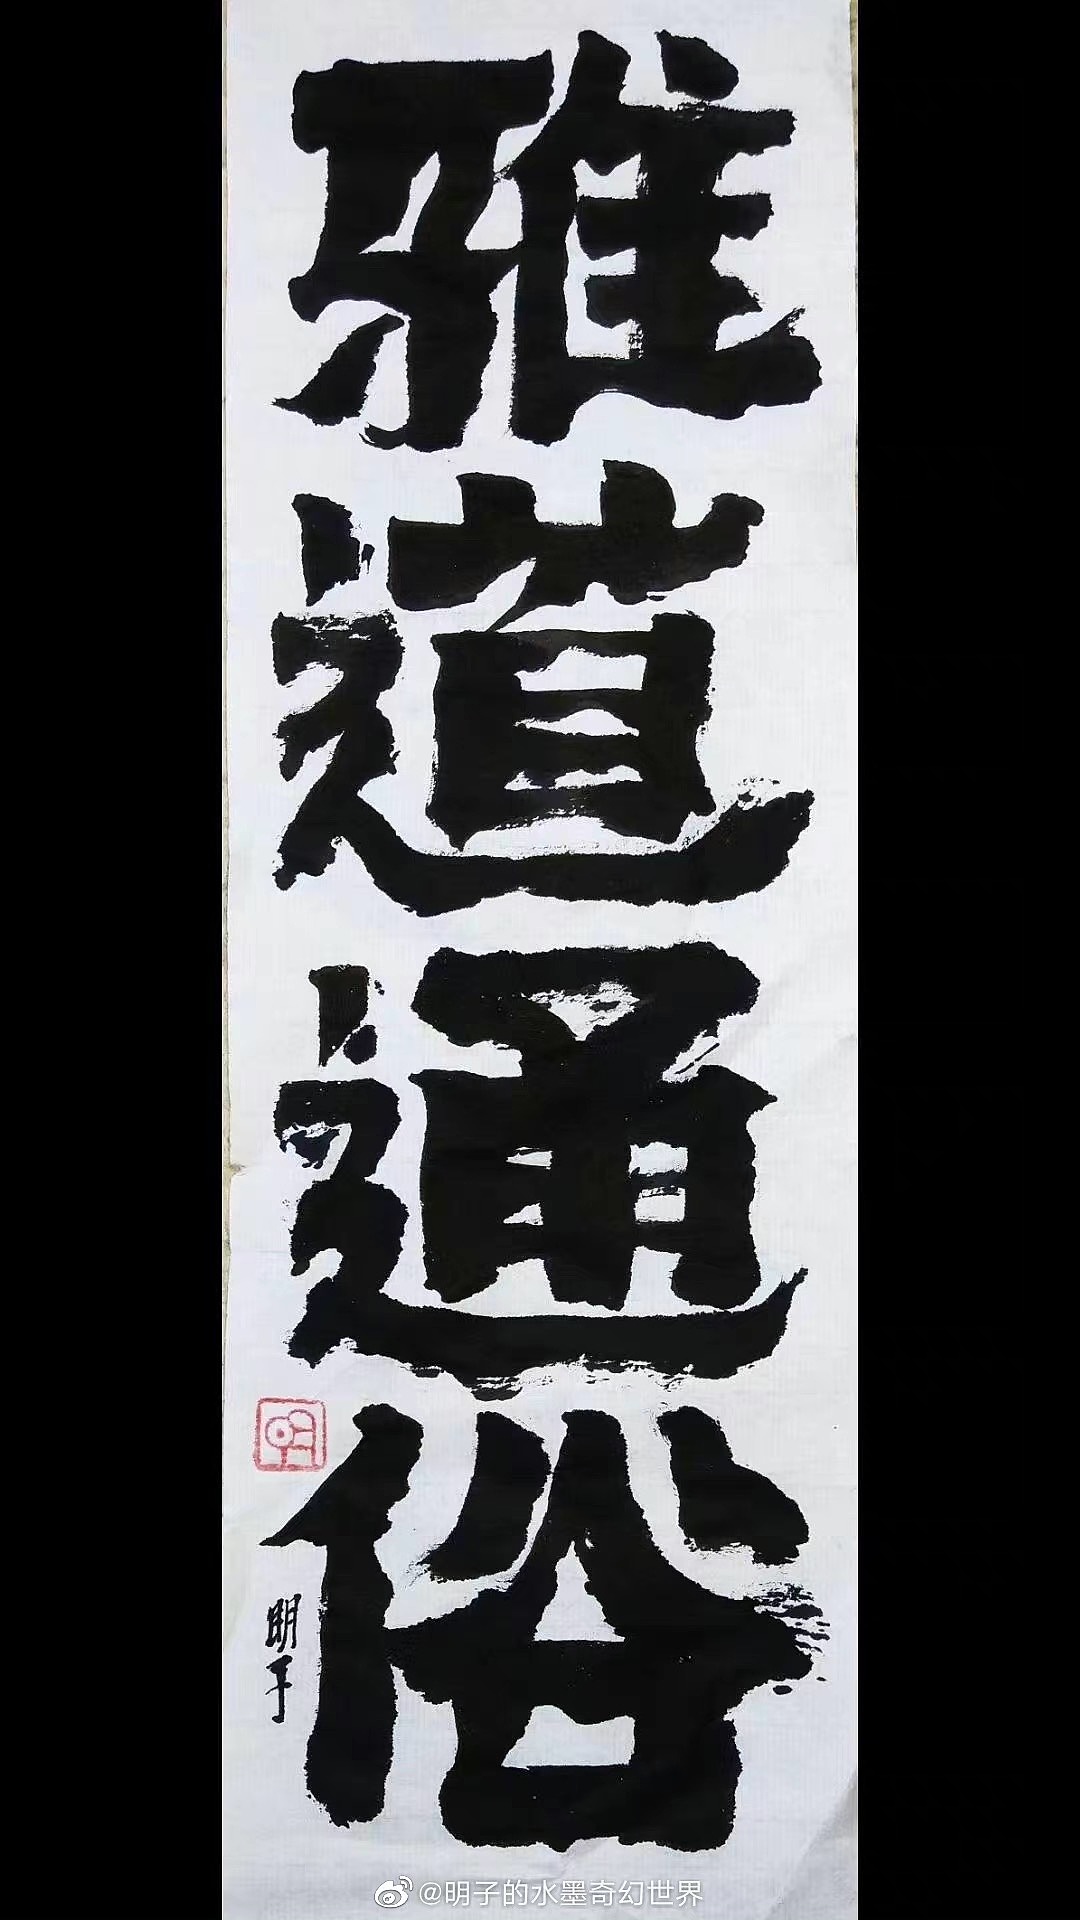 雅道通俗
明子
@明子的水墨奇幻世界